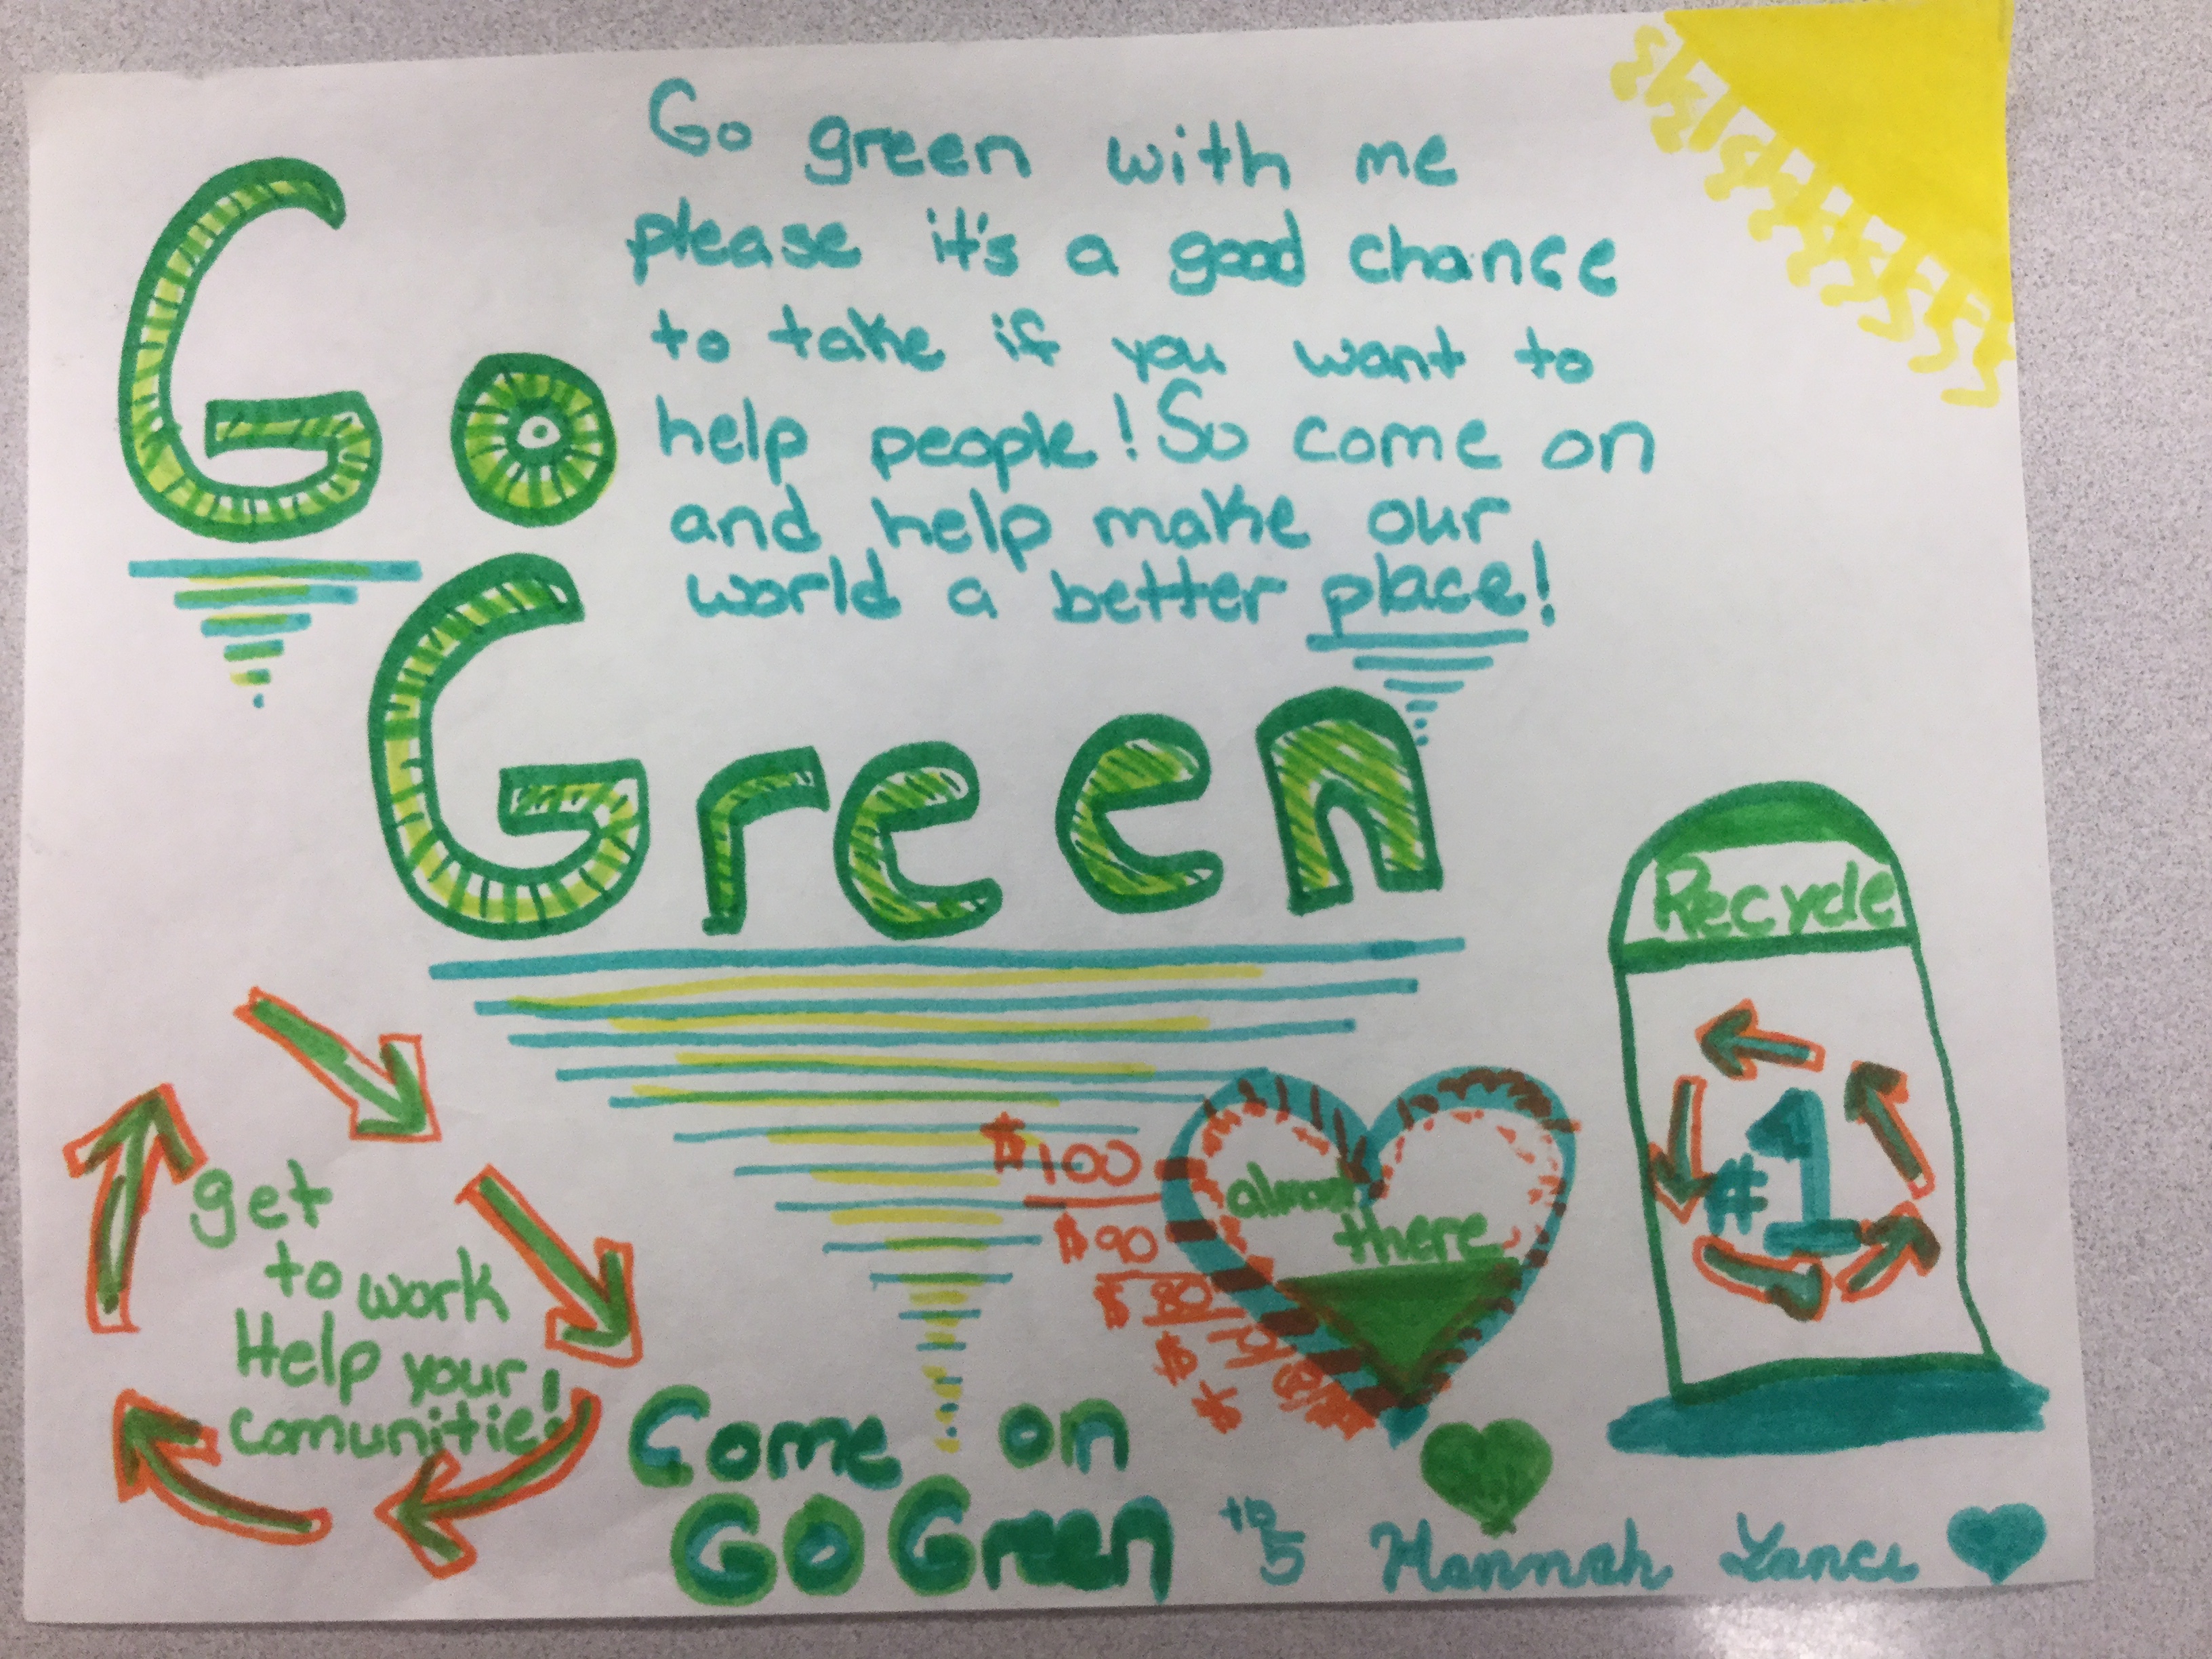 Go
Green
Go green with me
please it's a good chance
to take if you want to
help people! So come on
and help make our
world a better place!
Recycle
#1
get
to work
Help your
comunitie!
$100
$90
$80
almost
there
Come on
GO Green
Hannah Lance